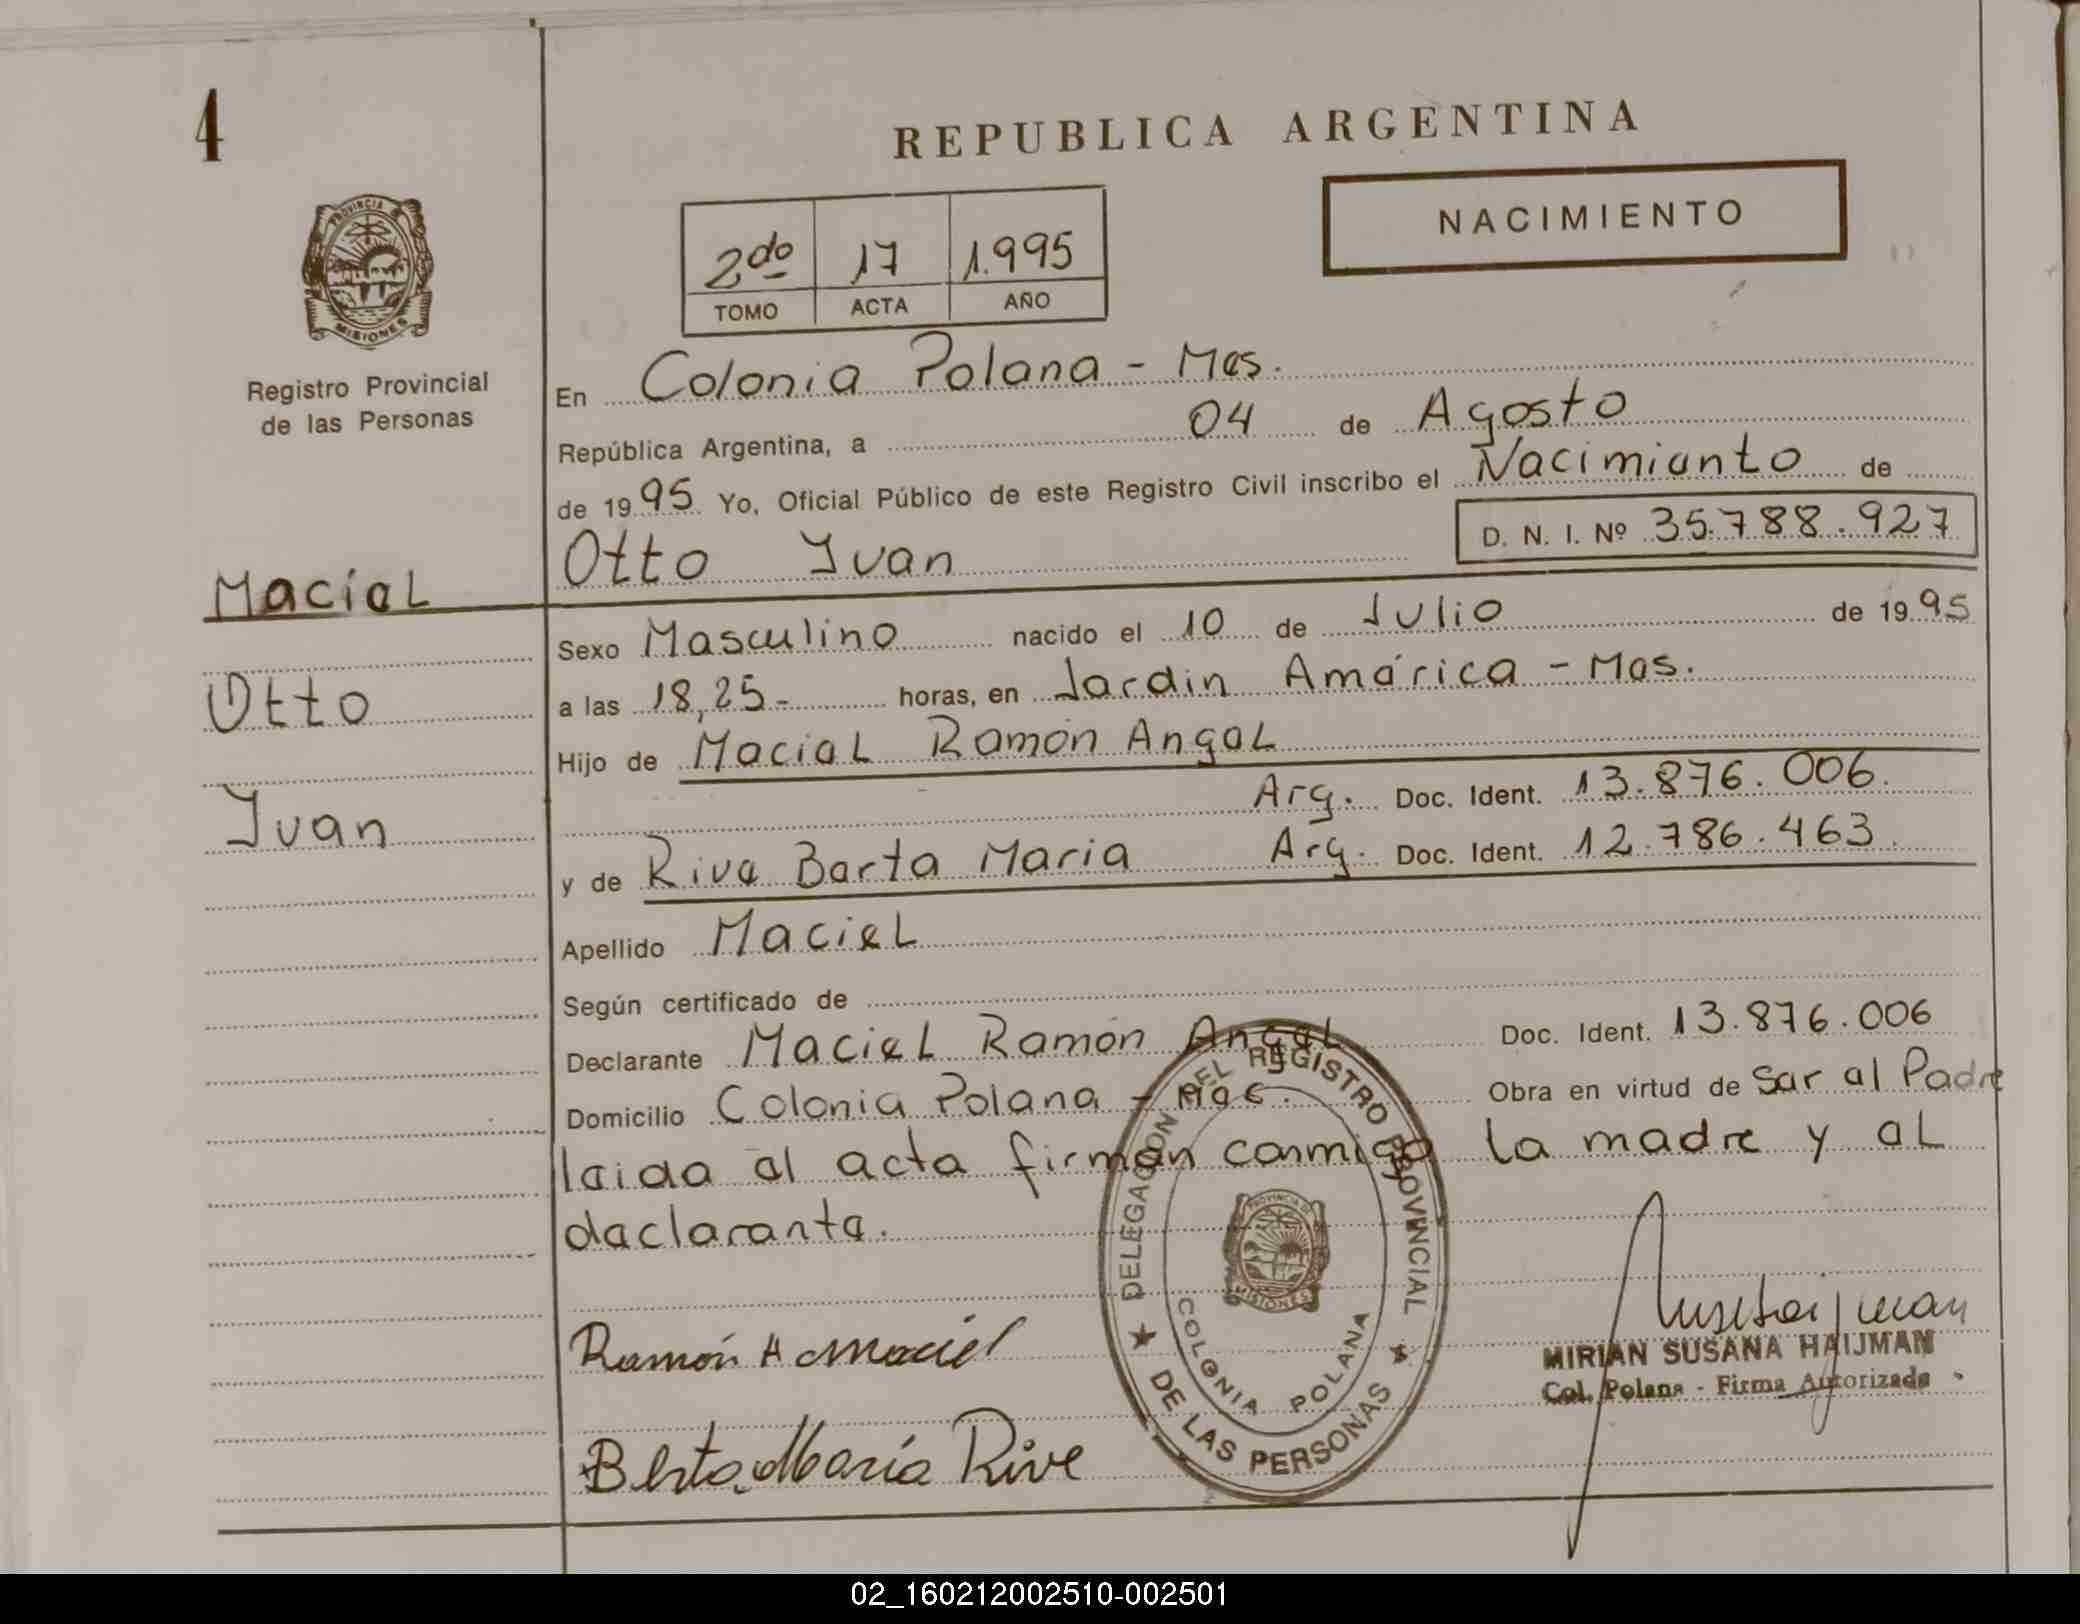 4
REPUBLICA ARGENTINA
PROVINCIA
MISIONES
Registro Provincial
de las Personas
2do 17 1.995
TOMO ACTA AÑO
NACIMIENTO
En Colonia Polana - Mes.
República Argentina, a 04 de Agosto
de 1995 Yo, Oficial Público de este Registro Civil inscribo el Nacimiento de
Otto Ivan D. N. I. Nº 35.788.927
Maciel
Otto
Ivan
Sexo Masculino nacido el 10 de Julio de 1995
a las 18,25- horas, en Jardin América - Mes.
Hijo de Maciel Ramón Angel
Arg. Doc. Ident. 13.876.006.
y de Rive Berta Maria Arg. Doc. Ident. 12.786.463.
Apellido Maciel
Según certificado de
Declarante Maciel Ramón Angel Doc. Ident. 13.876.006
Domicilio Colonia Polana - Mes. Obra en virtud de Ser el Padre
leida el acta firman conmigo la madre y el
declarante.
DELEGACION DEL REGISTRO PROVINCIAL
DE LAS PERSONAS
PROVINCIA DE
MISIONES
COLONIA POLANA
Ramón A Maciel
MIRIAN SUSANA HAIJMAN
Col. Polana - Firma Autorizada
Berta María Rive
02_160212002510-002501